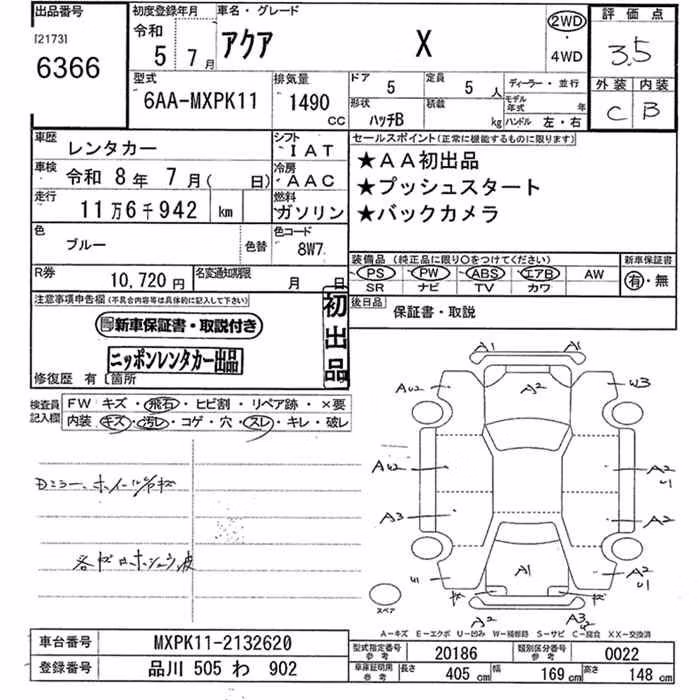 出品番号
[2173]
6366
初度登録年月
令和
5 7月
車名・グレード
アクア X
2WD
・
4WD
評価点
3.5
外装 内装
C B
型式
6AA-MXPK11
排気量
1490
CC
ドア
5
定員
5 人
形状
ハッチB
積載
kg
ディーラー・並行
モデル年式 年
ハンドル 左・右
車歴
レンタカー
シフト
IAT
車検
令和 8年 7月( 日)
冷房
AAC
走行
11万6千942 km
燃料
ガソリン
色
ブルー
色替
色コード
8W7
R券
10,720円
名変通知期限
月 日
セールスポイント(正常に機能するものに限ります)
★AA初出品
★プッシュスタート
★バックカメラ
装備品(純正品に限り○をつけてください)
PS PW ABS エアB AW
SR ナビ TV カワ
新車保証書
有・無
後日品
保証書・取説
注意事項申告欄(不具合内容等は具体的に記入して下さい)
新車保証書・取説付き
ニッポンレンタカー出品
初出品
修復歴 有〔箇所
検査員記入欄
FW キズ・飛石・ヒビ割・リペア跡・×要
内装 キズ・汚レ・コゲ・穴・スレ・キレ・破レ
A1 A1
AU2 A2 W3
AU2 A2
U1
A3 A2
U1 A1 A2
U1
スペア
A2 A3
A-キズ E-エクボ U-凹み W-補修跡 S-サビ C-腐食 XX-交換済
車台番号
MXPK11-2132620
登録番号
品川 505 わ 902
型式指定番号
参考
20186
類別区分番号
参考
0022
車庫証明用
参考
長さ 405 cm
幅 169 cm
高さ 148 cm